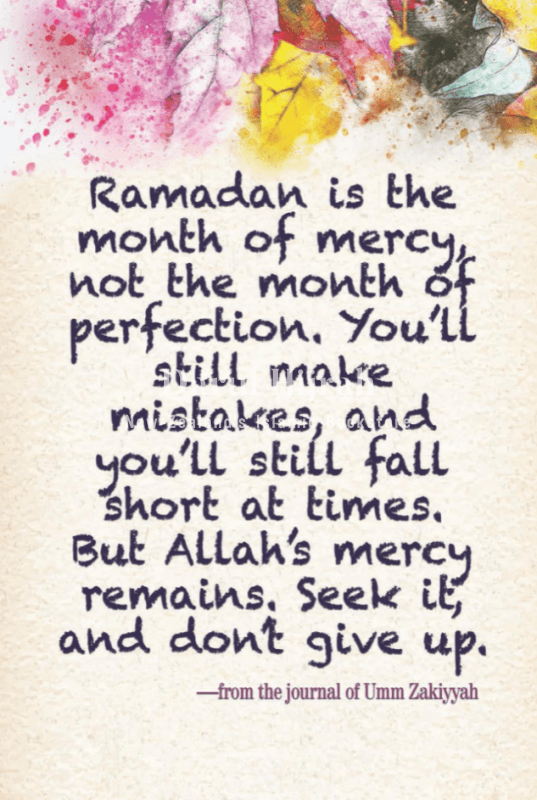 Ramadan is the
month of mercy,
not the month of
perfection. You'll
still make
mistakes, and
you'll still fall
short at times.
But Allah's mercy
remains. Seek it,
and don't give up.
—from the journal of Umm Zakiyyah